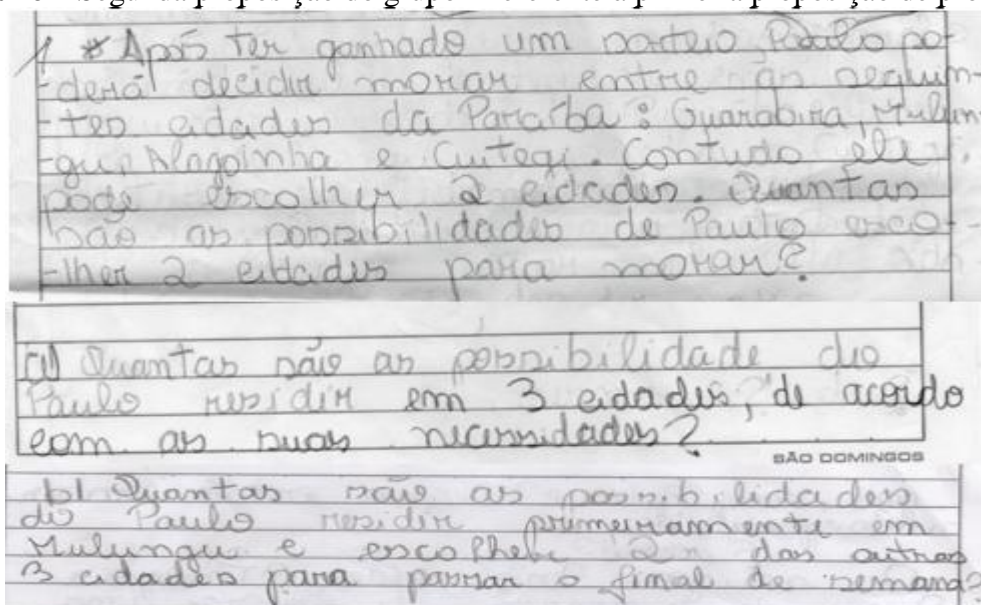 Segunda proposição do grupo
1 * Após ter ganhado um sorteio, Paulo po-
-derá decidir morar entre as seguin-
-tes cidades da Paraíba: Guarabira, Mulun-
-gu, Alagoinha e Cuitegi. Contudo ele
pode escolher 2 cidades. Quantas
são as possibilidades de Paulo esco-
-lher 2 cidades para morar?
a) Quantas são as possibilidade do
Paulo residir em 3 cidades, de acordo
com as suas necessidades?
SÃO DOMINGOS
b) Quantas são as possibilidades
do Paulo residir primeiramente em
Mulungu e escolher 2 das outras
3 cidades para passar o final de semana?